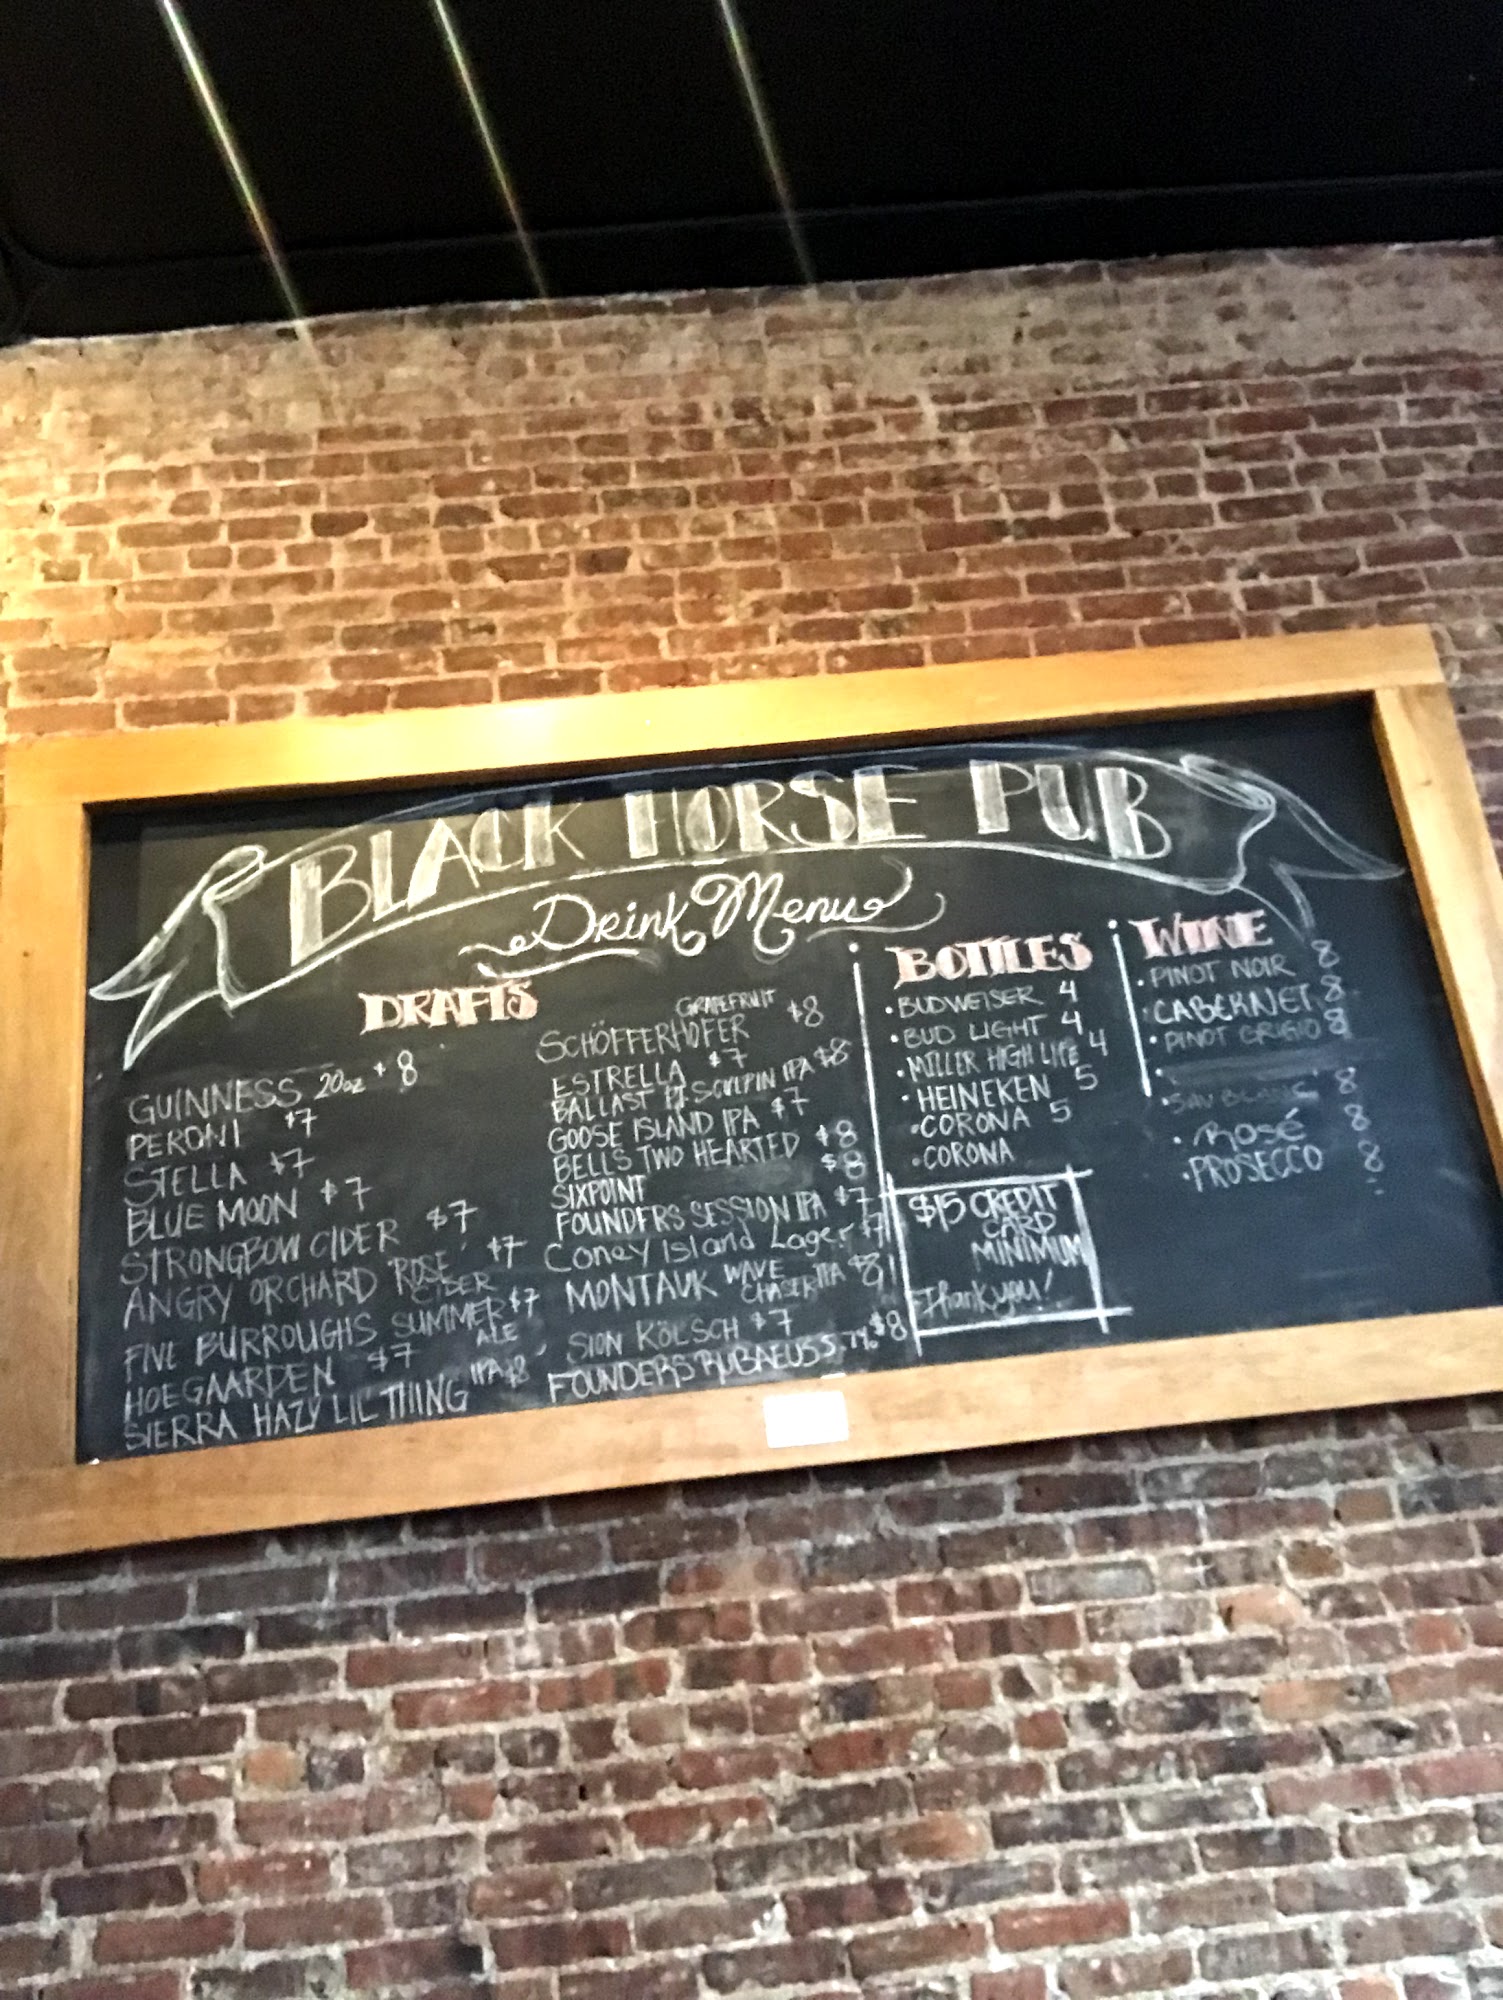 BLACK HORSE PUB
Drink Menu
DRAFTS
GUINNESS 20oz $8
PERONI $7
STELLA $7
BLUE MOON $7
STRONGBOW CIDER $7
ANGRY ORCHARD ROSÉ CIDER $7
FIVE BURROUGHS SUMMER ALE $7
HOEGAARDEN $7
SIERRA HAZY LIL THING IPA $8
GRAPEFRUIT
SCHÖFFERHOFER $8
ESTRELLA $7
BALLAST PT SCULPIN IPA $8
GOOSE ISLAND IPA $7
BELLS TWO HEARTED $8
SIXPOINT $8
FOUNDERS SESSION IPA $7
Coney Island Lager $7
MONTAUK WAVE CHASER IPA $8
SION KÖLSCH $7
FOUNDERS RUBAEUS 5.7% $8
BOTTLES
• BUDWEISER 4
• BUD LIGHT 4
• MILLER HIGH LIFE 4
• HEINEKEN 5
• CORONA 5
• CORONA
$15 CREDIT
CARD
MINIMUM
Thank you!
WINE
• PINOT NOIR 8
• CABERNET 8
• PINOT GRIGIO 8
• SAV BLANC 8
• Rosé 8
• PROSECCO 8